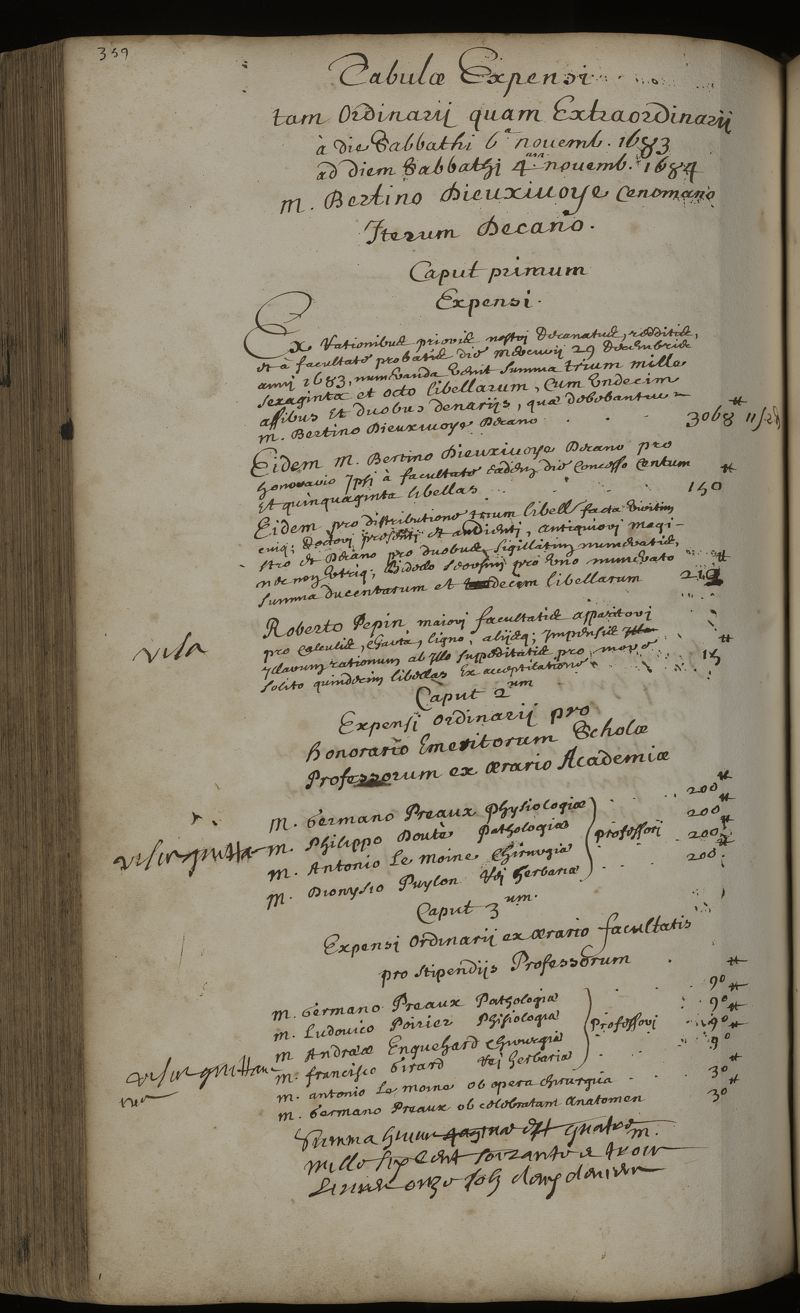 359
Tabulæ Expensi
tam Ordinarij quam Extraordinarij
à die Sabbathi 6ª novemb. 1683
ad diem Sabbathi 4am novemb. 1684
M. Bertino Dieuxivoye Cenomano
Iterum Decano.
Caput primum
Expensi.
Ex rationibus prioris nostri Decanatus, redditis,
et à facultate probatis die Mercurij 29 Decembris
anni 1683, numeranda venit summa trium mille
sexaginta et octo libellarum, cum undecim
assibus et duobus denarijs, quæ debebantur
M. Bertino Dieuxivoye Decano . . . 3068 ₶ 11 s 2 d
Eidem M. Bertino Dieuxivoye Decano pro
honorario Ipsi à facultate eadem die concesso centum
et quinquaginta libellas . . . 150 ₶
Eidem pro distributione trium libell facta viritim
cuiq; Doctori præsenti et audienti, antiquiori magi-
stro et Decano pro duobus sigillatim numeratis,
nec non utriq; Bidello seorsim pro uno numerato
summa ducentarum et decem libellarum 210 ₶
Roberto Pepin maiori facultatis apparitori
pro calculis, charta, ligno, alijsq; Impensis
Illarum rationum ab Illo suppeditatis pro more
solito quindecim libellas ex acceptilatione . . 15 ₶
visa
Caput 2um
Expensi Ordinarij pro
honorario Emeritorum Scholæ
Professorum ex ærario Academiæ
M. Germano Preaux Physiologiæ . . 200 ₶
M. Philippo Douté Pathologiæ . . 200 ₶
M. Antonio Le Moine Chirurgiæ professori . . 200 ₶
M. Dionysio Puylon Rei herbariæ . . 200 ₶
Caput 3um.
Expensi Ordinarij ex ærario facultatis
pro stipendijs Professorum .
M. Germano Preaux Pathologiæ . . 90 ₶
M. Ludovico Poirier Phisiologiæ . . 90 ₶
M Andreæ Enguehard Chirurgiæ Professori . . 90 ₶
M. francisco Girard Rei herbariæ . . 90 ₶
M. antonio Le Moine ob opera chirurgica . . 30 ₶
M. Germano Preaux ob celebratam Anatomen 30 ₶
Summa huius paginæ est quatre
mille six cent soixante et trois
livres onze sols deux deniers